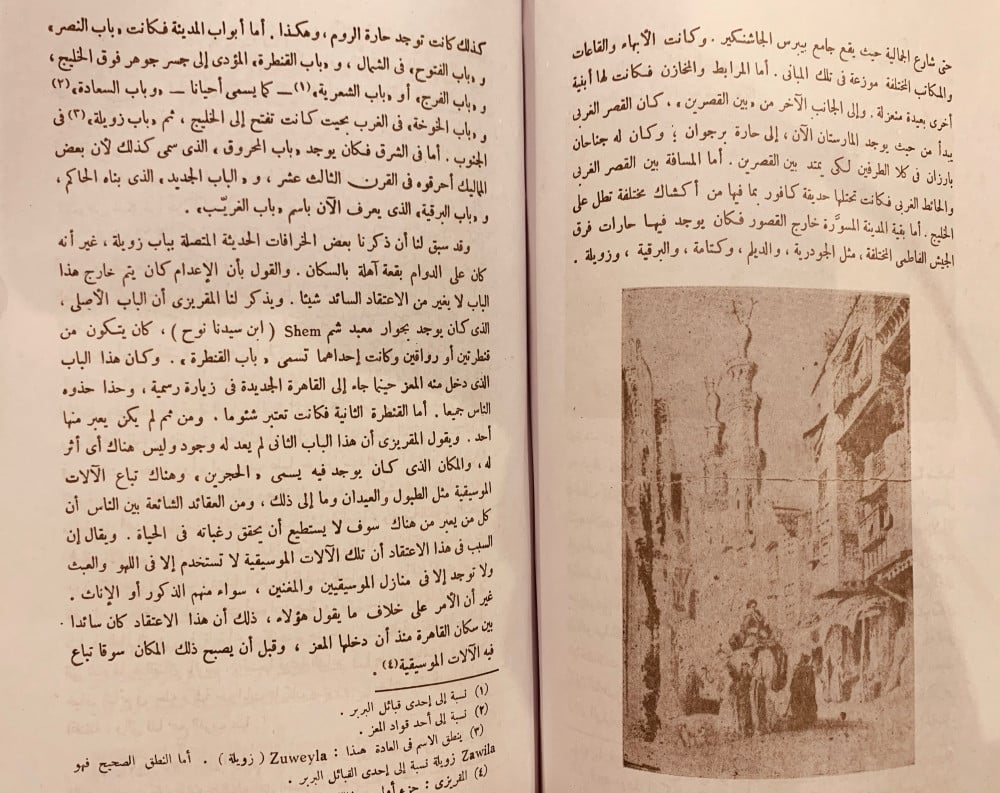 حتى شارع الجمالية حيث يقع جامع بيبرس الجاشنكير . وكانت الأبهاء والقاعات
والمكاتب المختلفة موزعة فى تلك المبانى . أما المرابط والمخازن فكانت لها أبنية
أخرى بعيدة منعزلة . وإلى الجانب الآخر من «بين القصرين» ، كان القصر الغربى
يبدأ من حيث يوجد المارستان الآن ، إلى حارة برجوان ؛ وكان له جناحان
بارزان فى كلا الطرفين لكى يمتد بين القصرين . أما المسافة بين القصر الغربى
والحائط الغربى فكانت تحتلها حديقة كافور بما فيها من أكشاك مختلفة تطل على
الخليج . أما بقية المدينة المسوَّرة خارج القصور فكان يوجد فيها حارات فرق
الجيش الفاطمى المختلفة ، مثل الجودرية ، والديلم ، وكتامة ، والبرقية ، وزويلة .
كذلك كانت توجد حارة الروم ، وهكذا . أما أبواب المدينة فكانت «باب النصر»
و «باب الفتوح» فى الشمال ، و «باب القنطرة» المؤدى إلى جسر جوهر فوق الخليج ،
و «باب الفرج» أو «باب الشعرية» (١) — كما يسمى أحيانا — و«باب السعادة» (٢)
و «باب الخوخة» فى الغرب بحيث كانت تفتح إلى الخليج ، ثم «باب زويلة» (٣) فى
الجنوب . أما فى الشرق فكان يوجد «باب المحروق» الذى سمى كذلك لأن بعض
المماليك أحرقوه فى القرن الثالث عشر ، و « الباب الجديد» الذى بناه الحاكم ،
و «باب البرقية» الذى يعرف الآن باسم «باب الغريّب» .
وقد سبق لنا أن ذكرنا بعض الخرافات الحديثة المتصلة بباب زويلة ، غير أنه
كان على الدوام بقعة آهلة بالسكان . والقول بأن الإعدام كان يتم خارج هذا
الباب لا يغير من الاعتقاد السائد شيئا . ويذكر لنا المقريزى أن الباب الأصلى ،
الذى كان يوجد بجوار معبد شم Shem ( ابن سيدنا نوح ) ، كان يتكون من
قنطرتين أو رواقين وكانت إحداهما تسمى «باب القنطرة» . وكان هذا الباب
الذى دخل منه المعز حينما جاء إلى القاهرة الجديدة فى زيارة رسمية ، وحذا حذوه
الناس جميعا . أما القنطرة الثانية فكانت تعتبر شئوما . ومن ثم لم يكن يعبر منها
أحد . ويقول المقريزى أن هذا الباب الثانى لم يعد له وجود وليس هناك أى أثر
له ، والمكان الذى كان يوجد فيه يسمى « الحجرين» وهناك تباع الآلات
الموسيقية مثل الطبول والعيدان وما إلى ذلك ، ومن العقائد الشائعة بين الناس أن
كل من يعبر من هناك سوف لا يستطيع أن يحقق رغباته فى الحياة . ويقال إن
السبب فى هذا الاعتقاد أن تلك الآلات الموسيقية لا تستخدم إلا فى اللهو والعبث
ولا توجد إلا فى منازل الموسيقيين والمغنين ، سواء منهم الذكور أو الإناث .
غير أن الأمر على خلاف ما يقول هؤلاء ، ذلك أن هذا الاعتقاد كان سائدا
بين سكان القاهرة منذ أن دخلها المعز ، وقبل أن يصبح ذلك المكان سوقا تباع
فيه الآلات الموسيقية (٤) .
(١) نسبة إلى إحدى قبائل البربر .
(٢) نسبة إلى أحد قواد المعز .
(٣) ينطق الاسم فى العادة هكذا : Zuweyla ( زويلة ) . أما النطق الصحيح فهو
Zawila زويلة نسبة إلى إحدى القبائل البربر .
(٤) المقريزى : جزء